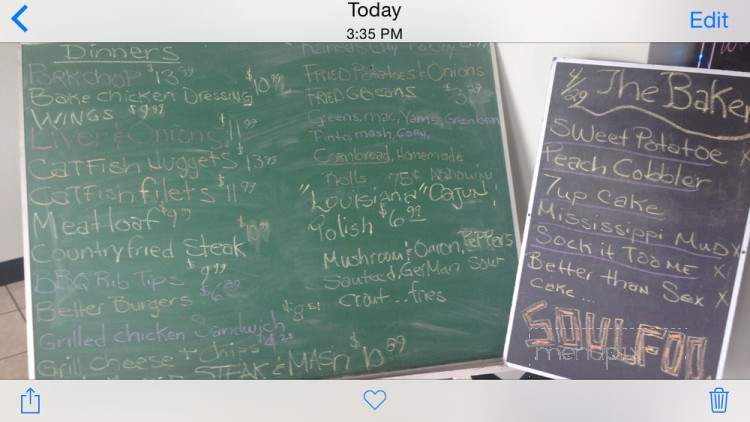 Today
3:35 PM
Edit
Dinners
Porkchop $13.99
Bake chicken Dressing $10.99
Wings $9.99
Liver & Onions $11.99
Catfish Nuggets $13.99
Catfish filets $11.99
Meatloaf $9.99
Countryfried Steak
$9.99
BBQ Rib Tips
Better Burgers $6.99
Grilled chicken Sandwich
Grill cheese + chips $4.25
STEAK & MASH $10.99
Fried Potatoes & Onions
Greens, mac, Yams, Greenbean
Pinto, mash, Corn,
Cornbread, Homemade
Rolls 75¢ Addown
"Louisiana" Cajun
Polish $6.99
Mushroom & Onion, Peppers
Sauteed, German Sour
crout.. fries
4/29 The Baker
Sweet Potatoe X
Peach Cobbler
7up cake
Mississippi Mud X
Sock it Too me X
Better than Sex X
cake...
SOULFOO
menupix